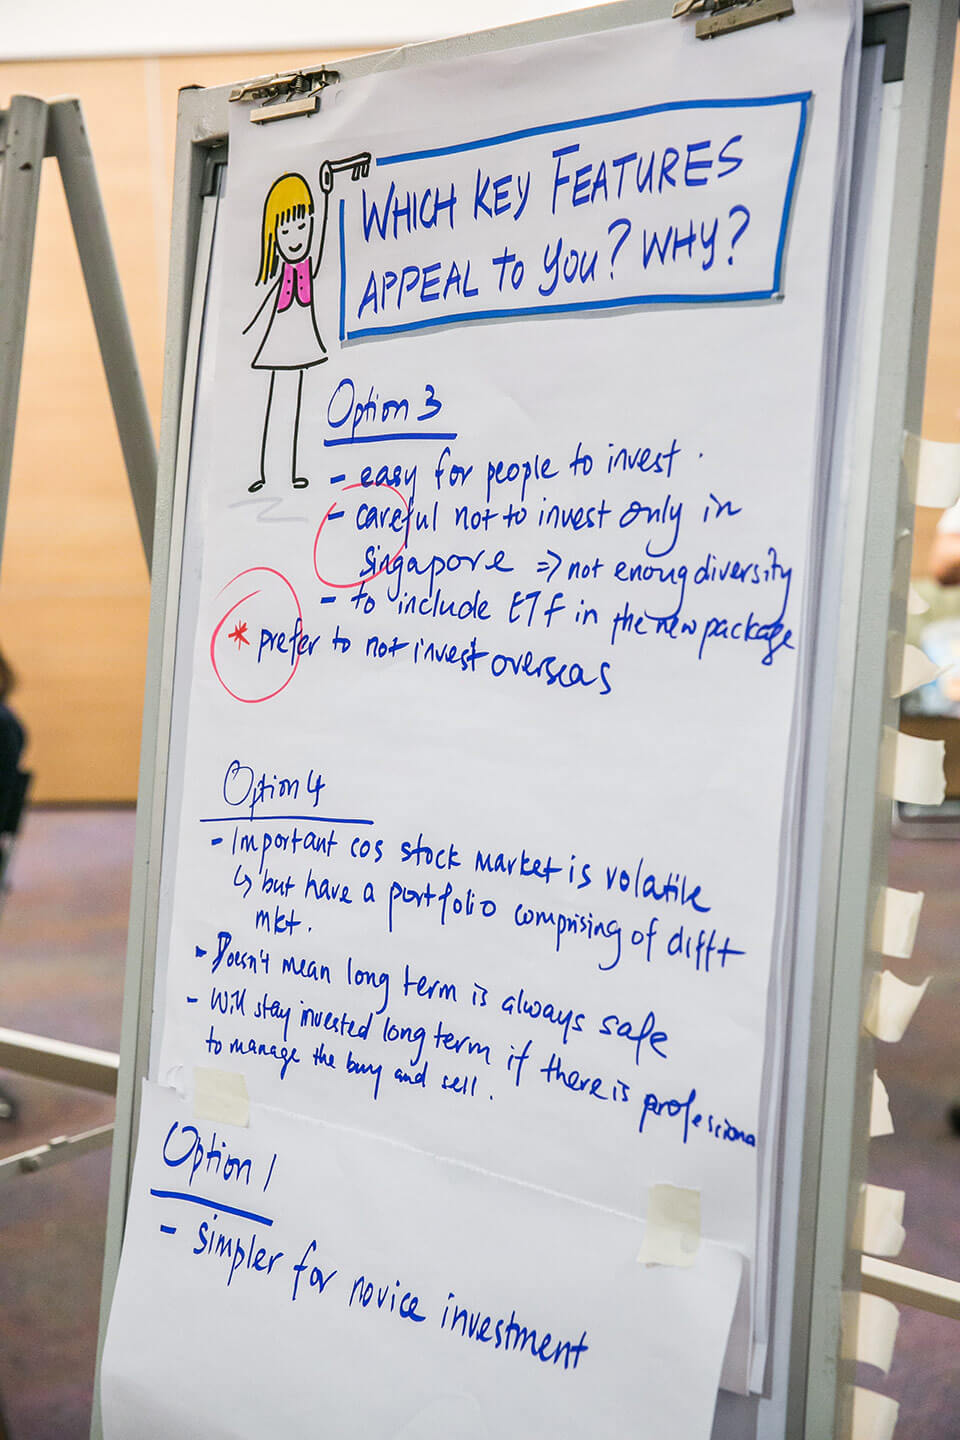 WHICH KEY FEATURES
APPEAL TO YOU? WHY?
Option 3
- easy for people to invest.
- careful not to invest only in
singapore => not enoug diversity
- to include ETF in the new package
* prefer to not invest overseas
Option 4
- Important cos stock market is volatile
↳ but have a portfolio comprising of difft
mkt.
- Doesn't mean long term is always safe
- Will stay invested long term if there is professiona
to manage the buy and sell.
Option 1
- simpler for novice investment